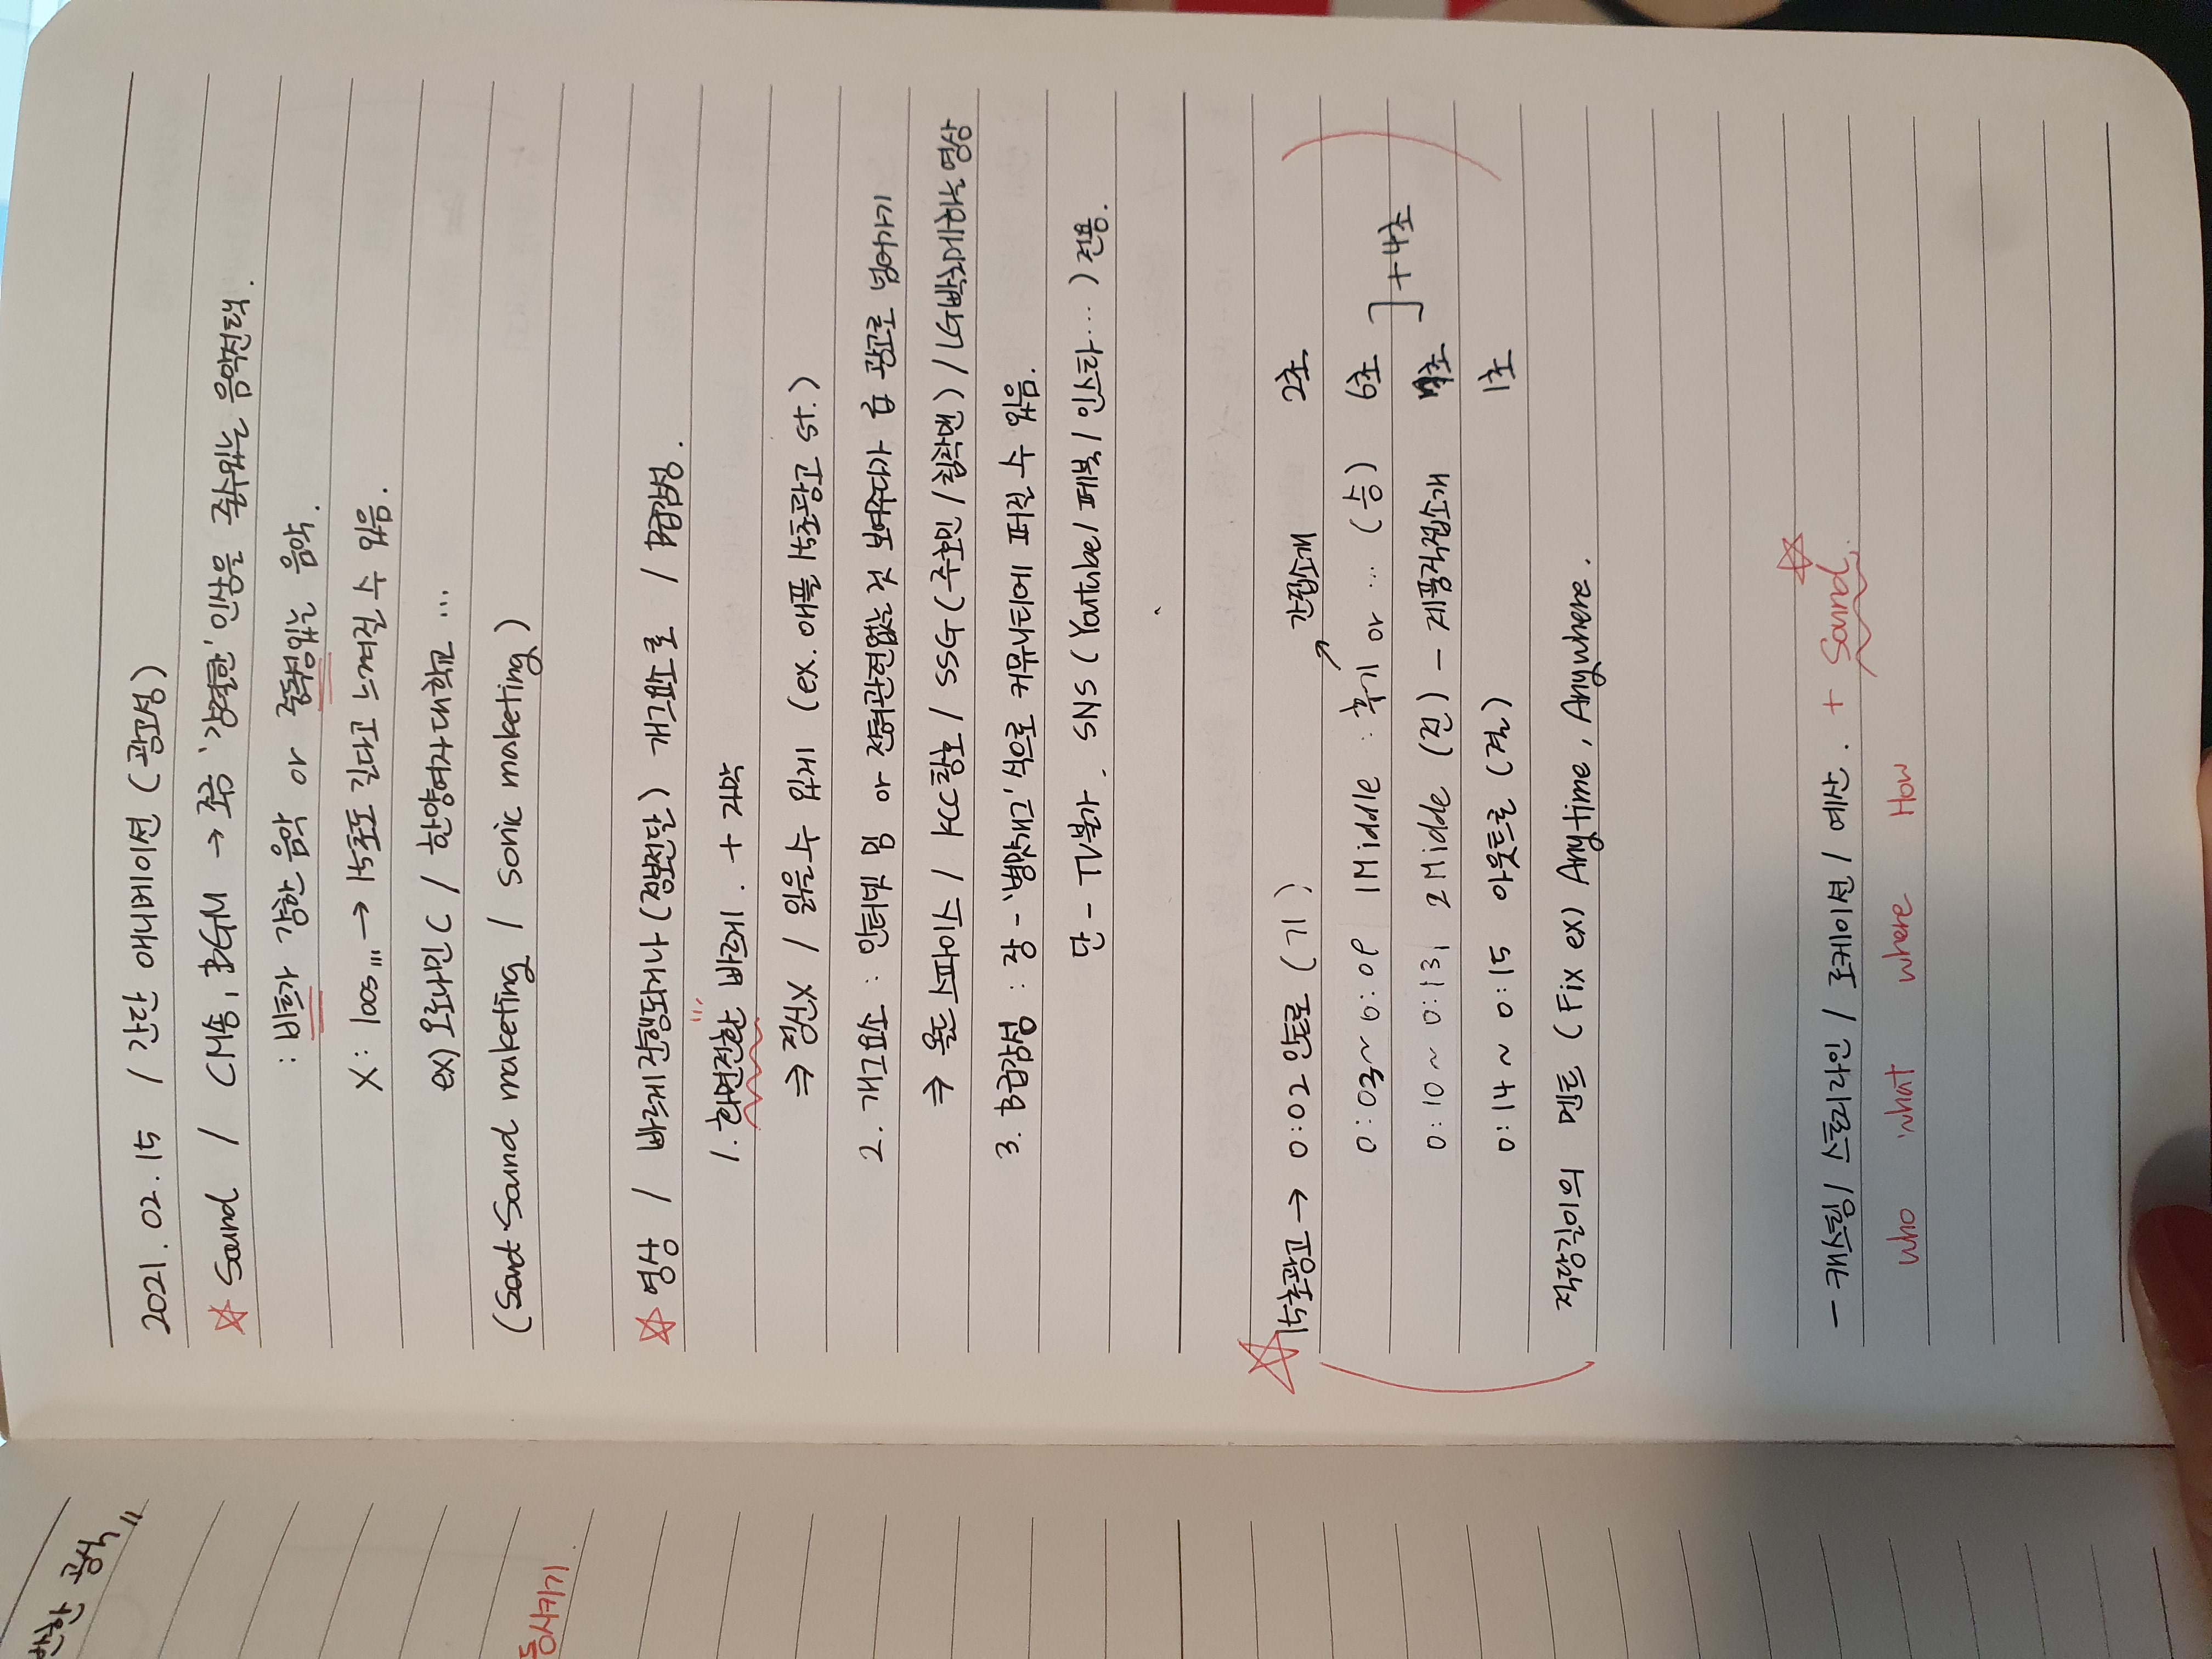 반한 공식 "
동시키기.
2021. 02. 15 / 간단 애니메이션 (광고성)
☆ Sound / CM송, BGM → 조금 '강렬한' 인상을 줄수있는 음악선택.
: 비트가 강한 음악 or 중독성있는 음악.
X : loos ,,, → 15초도 길다고 느껴질 수 있음.
ex) 오로나민 C / 한양여자대학교 ...
(Sound maketing / sonic maketing)
☆ 영상 / 빠르게진행되거나 (정보전달) 개그요소로 / B급감성.
1. 화면전환 빠르게. + 자막
⇒ 정신X / 읽을 수 있게 (ex. 애플 15초광고 st.)
2. 개그요소 : 인터넷 밈 or 전혀관련없는 것 보여주다가 급 광고로 넘어가기
⇒ 올드스파이스 / KCC창호 / SSG (주호민 / 침착맨) / LG빡치게하는 영상
3. B급감성 : 장 - '병맛개그' 식으로 커뮤니티에 퍼질 수 있음.
단 - TV불가. SNS (Youtube / 페북 / 인스타 ...) 전용.
☆ 15초광고 → 0:02 인트로 (기) 2초
간접소개
0:03 ~ 0:09 1Middle : 후기 or ... (승) 6초
] +4초
0:10 ~ 0:13, 2Midde (전) - 제품직접소개 초
0:14 ~ 0:15 아웃트로 (결) 1초
적당길이의 멘트 (Fix ex) Anytime, Anywhere.
- 캐스팅 / 스토리라인 / 로케이션 / 예산. + Sound. ☆
who what where How